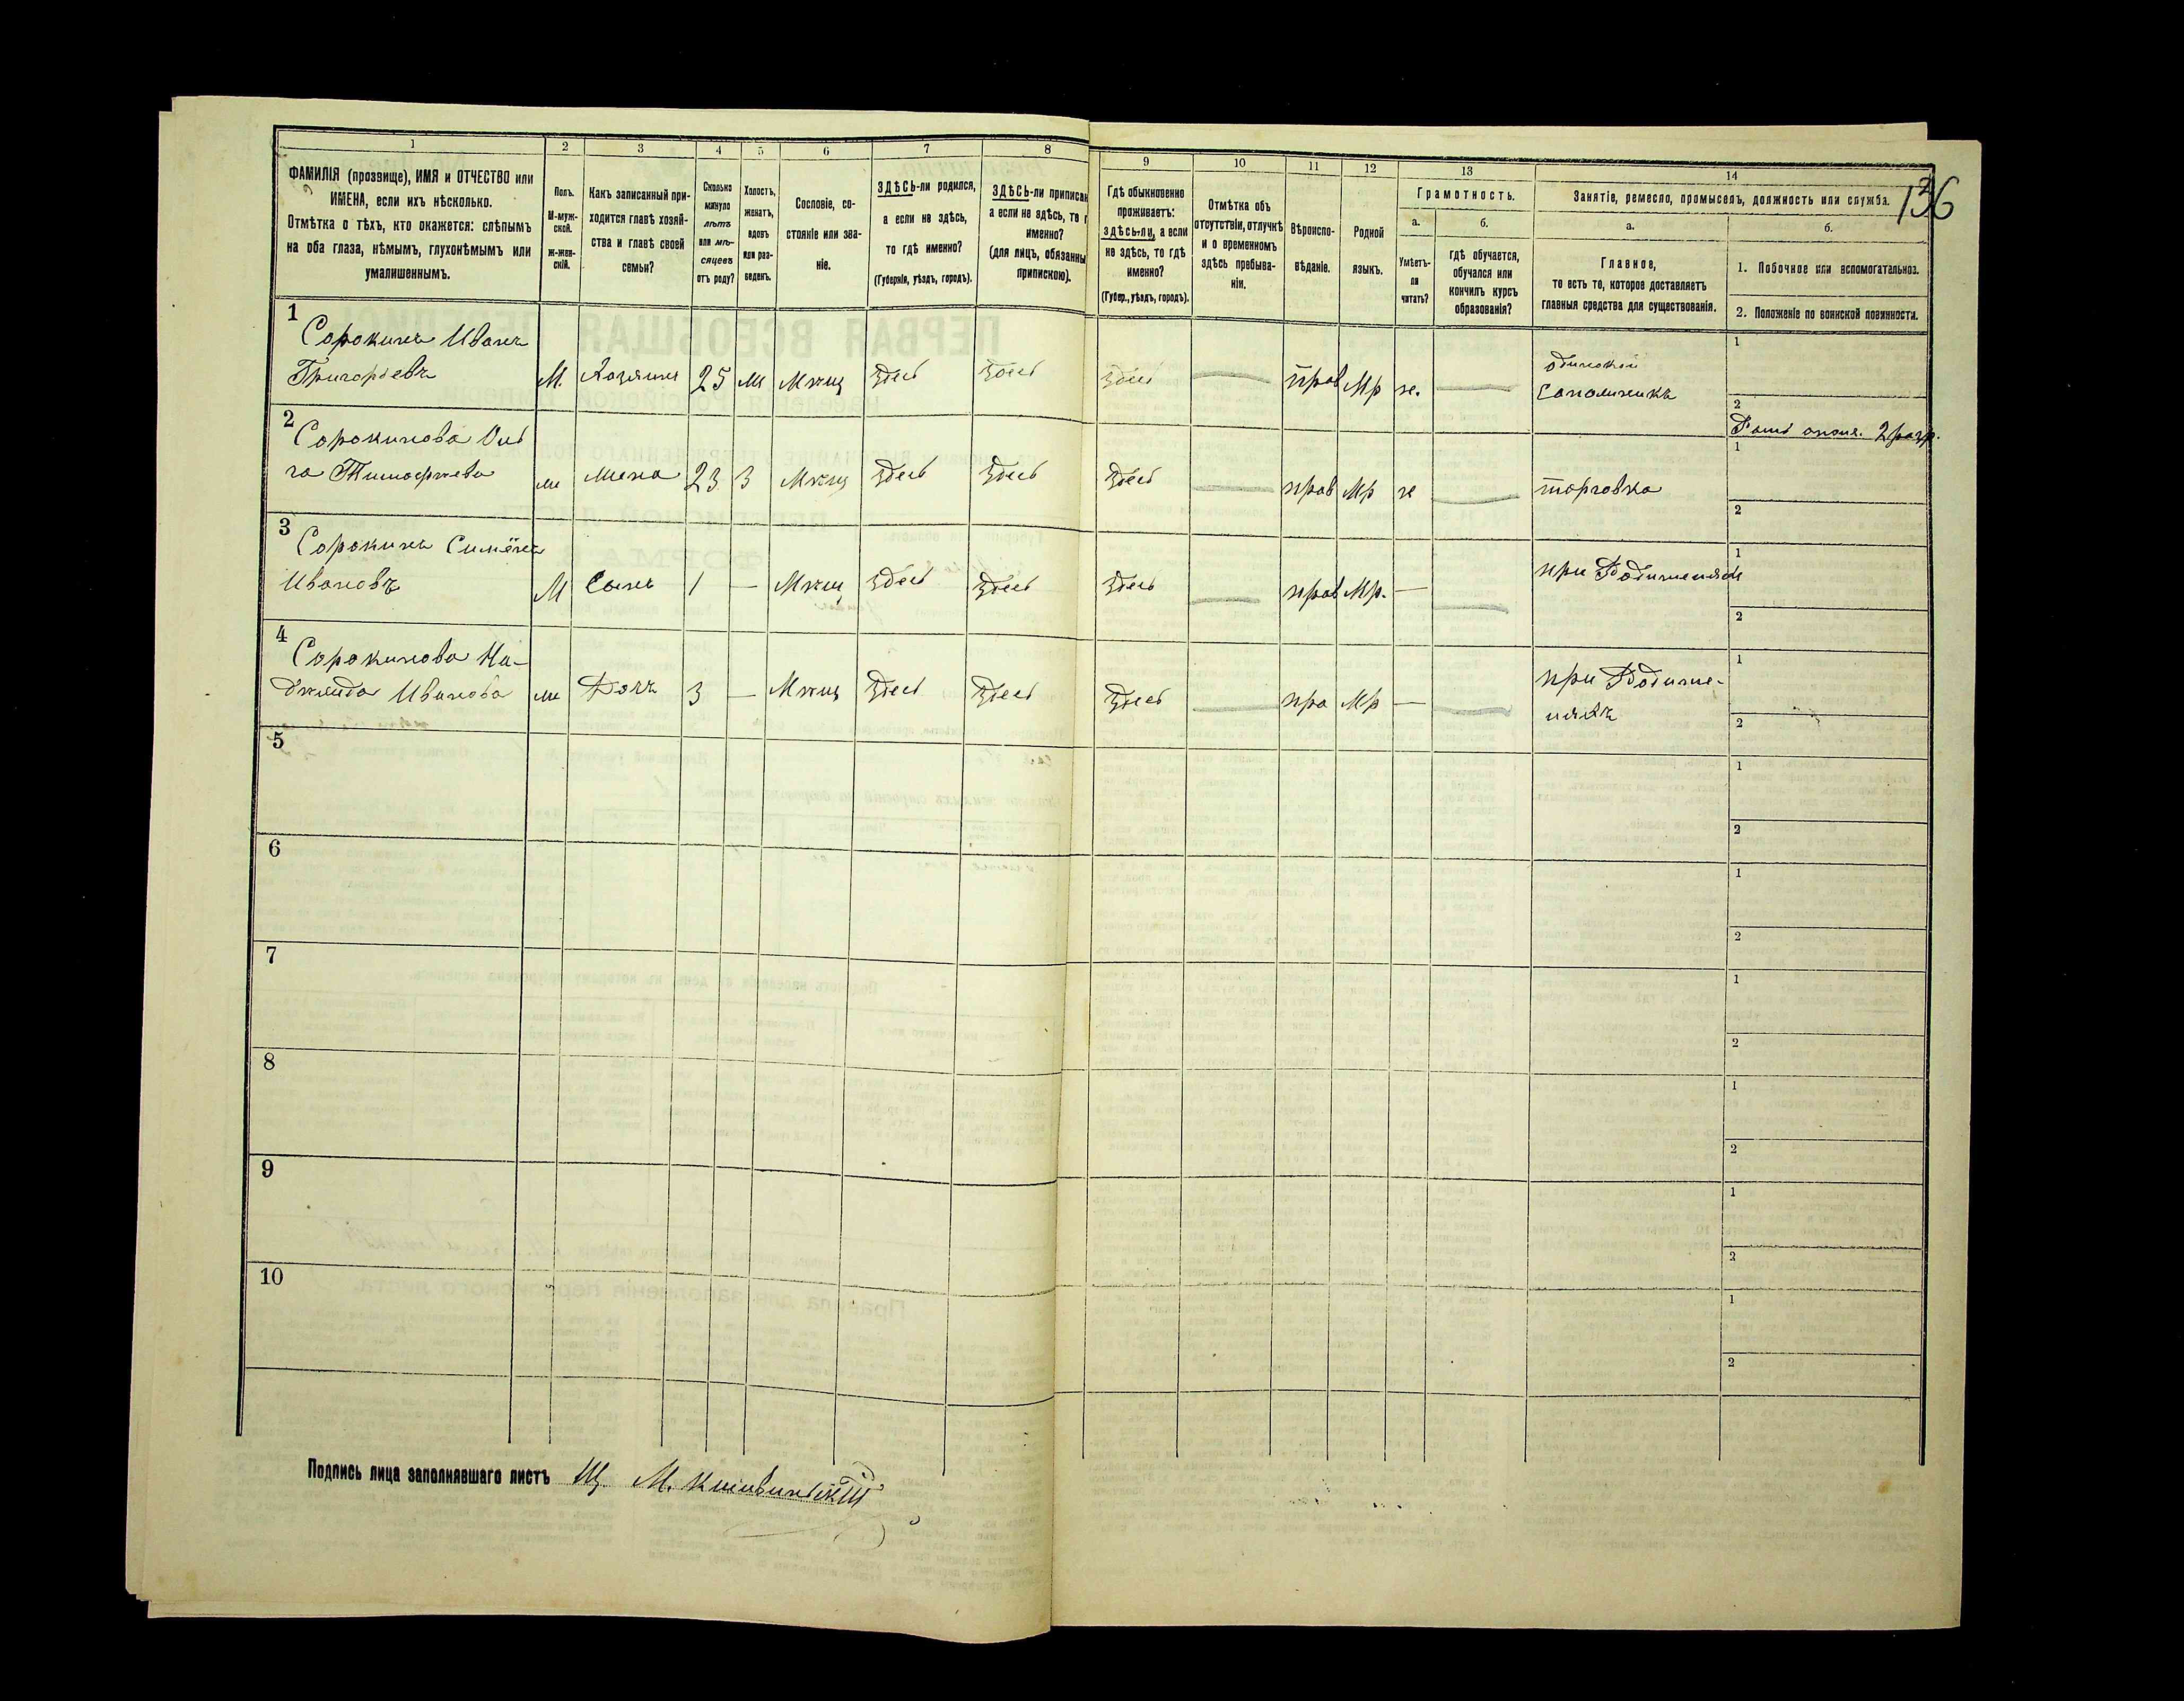 1 2 3 4 5 6 7 8 9 10 11 12 13 14
136
ФАМИЛІЯ (прозвище), ИМЯ и ОТЧЕСТВО или
ИМЕНА, если ихъ нѣсколько.
Отмѣтка о тѣхъ, кто окажется: слѣпымъ
на оба глаза, нѣмымъ, глухонѣмымъ или
умалишеннымъ.
Полъ.
М-муж-
ской.
Ж-жен-
скій.
Какъ записанный при-
ходится главѣ хозяй-
ства и главѣ своей
семьи?
Сколько
минуло
лѣтъ
или мѣ-
сяцевъ
отъ роду?
Холостъ,
женатъ,
вдовъ
или раз-
веденъ.
Сословіе, со-
стояніе или зва-
ніе.
ЗДѢСЬ-ли родился,
а если не здѣсь,
то гдѣ именно?
(Губернія, уѣздъ, городъ).
ЗДѢСЬ-ли приписан
а если не здѣсь, то г
именно?
(для лицъ, обязанны
припискою).
Гдѣ обыкновенно
проживаетъ:
здѣсь-ли, а если
не здѣсь, то гдѣ
именно?
(Губер., уѣздъ, городъ).
Отмѣтка объ
отсутствіи, отлучкѣ
и о временномъ
здѣсь пребыва-
ніи.
Вѣроиспо-
вѣданіе.
Родной
языкъ.
Грамотность.
а.
Умѣетъ-
ли
читать?
б.
Гдѣ обучается,
обучался или
кончилъ курсъ
образованія?
Занятіе, ремесло, промыселъ, должность или служба.
а.
Главное,
то есть то, которое доставляетъ
главныя средства для существованія.
б.
1. Побочное или вспомогательное.
2. Положеніе по воинской повинности.
1
Сорокинъ Иванъ
Григорьевъ М. Хозяинъ 25 ж Мѣщ здесь здесь здесь прав Мр не.
Сапожникъ
1
2
2 разр.
2
Сорокинова
га Тимофѣева ж жена 23 З Мѣщ здесь здесь здесь прав Мр не торговка
1
2
3
Сорокинъ Симёнъ
Ивановъ М Сынъ 1 — Мѣщ здесь здесь здесь прав Мр. — при Родителяхъ
1
2
4
Сорокинова На-
дежда Иванова ж Дочь 3 — Мѣщ здесь здесь здесь пра Мр — при Родите-
ляхъ
1
2
5
1
2
6
1
2
7
1
2
8
1
2
9
1
2
10
1
2
Подпись лица заполнявшаго листъ М.